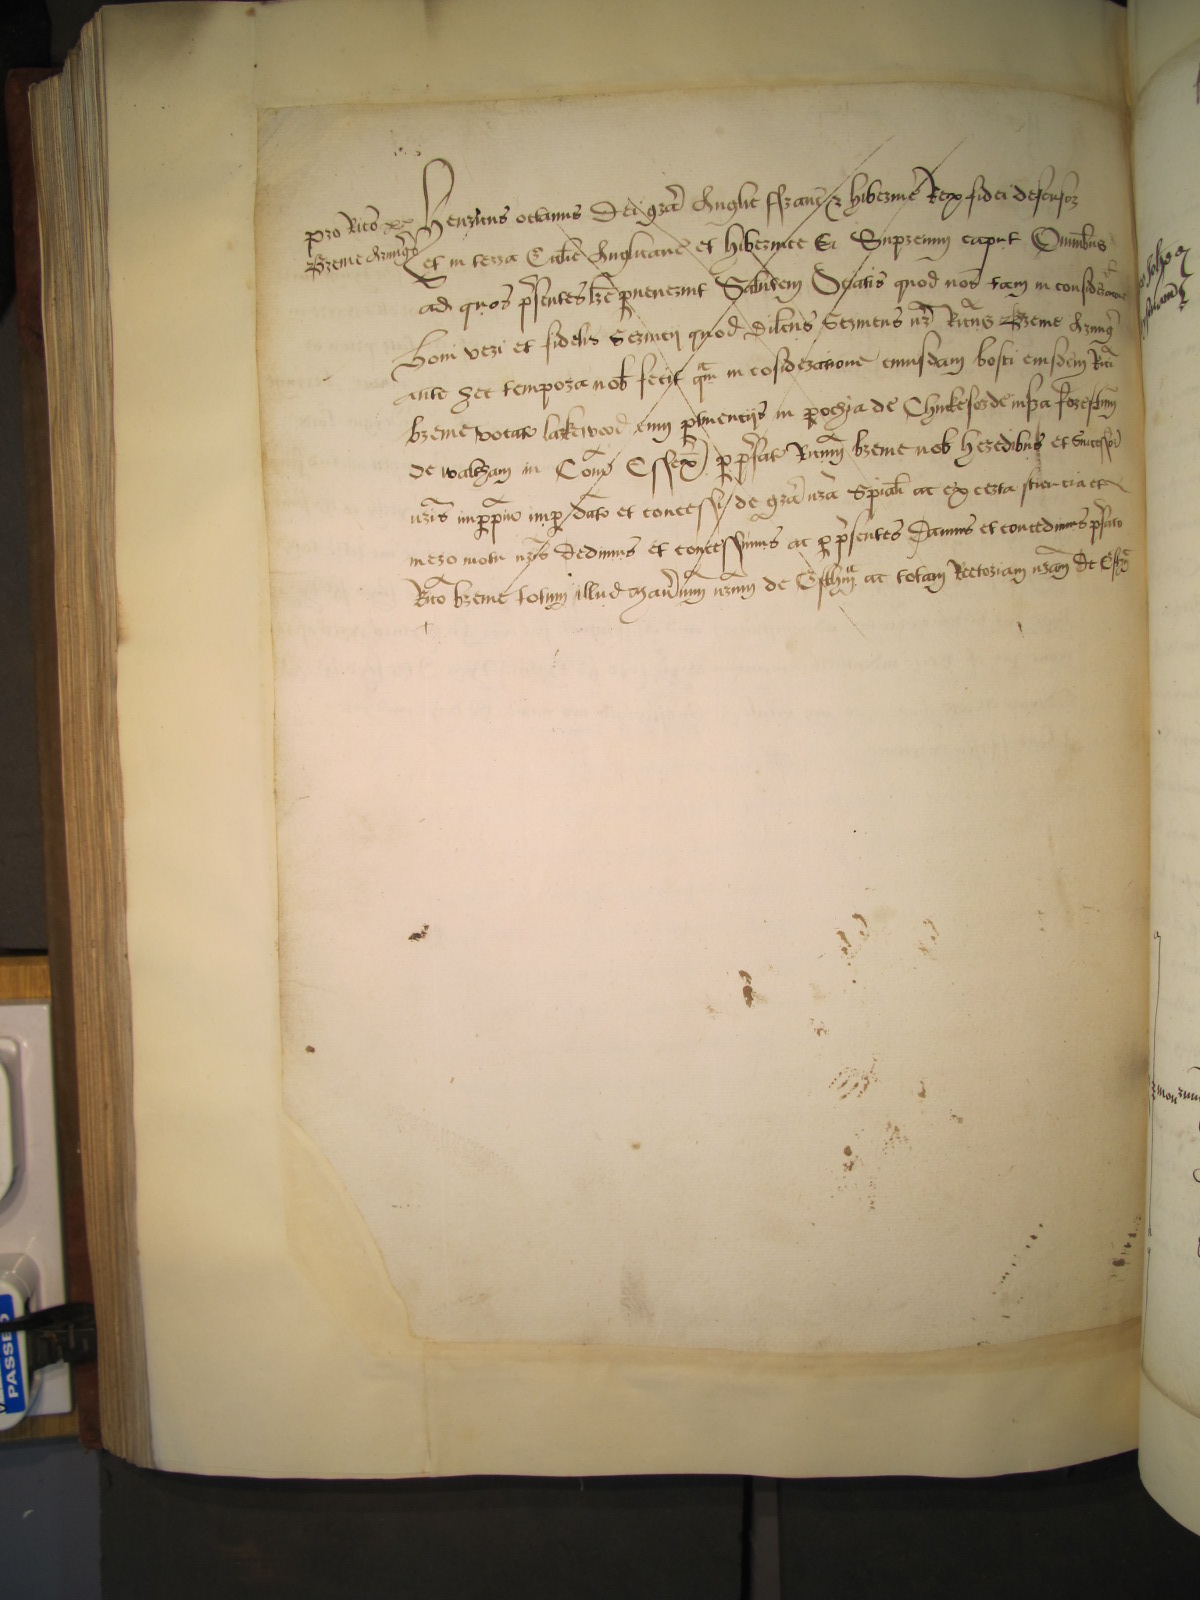 pro Rico
Breme Armig
Henricus octavus Dei gra Anglie ffranc & hibernie Rex fidei defensor
et in terra Ecclie Anglicane et hibernice Supremum caput Omnibus
ad quos presentes lre pervenerint Salutem Sciatis quod nos tam in consideracione
boni veri et fidelis servicij quod dilcus Serviens nr Ricus Breme Armig
ante hec tempora nob fecit qm in cosideracione cuiusdam bosci eiusdem Rici
breme vocat larkewood cum ptinencijs in pochia de Chinkeforde infra forestam
de waltham in Com Essex p prefat Ricum breme nob heredibus et Successor
nris imppm dato et concesso de gra nra spiali ac ex certa sciencia et
mero motu nris dedimus et concessimus ac p presentes Damus et concedimus prefato
Rico breme totum illud Manium nrum de Estham ac totam Rectoriam nram De Esthm
PASSED